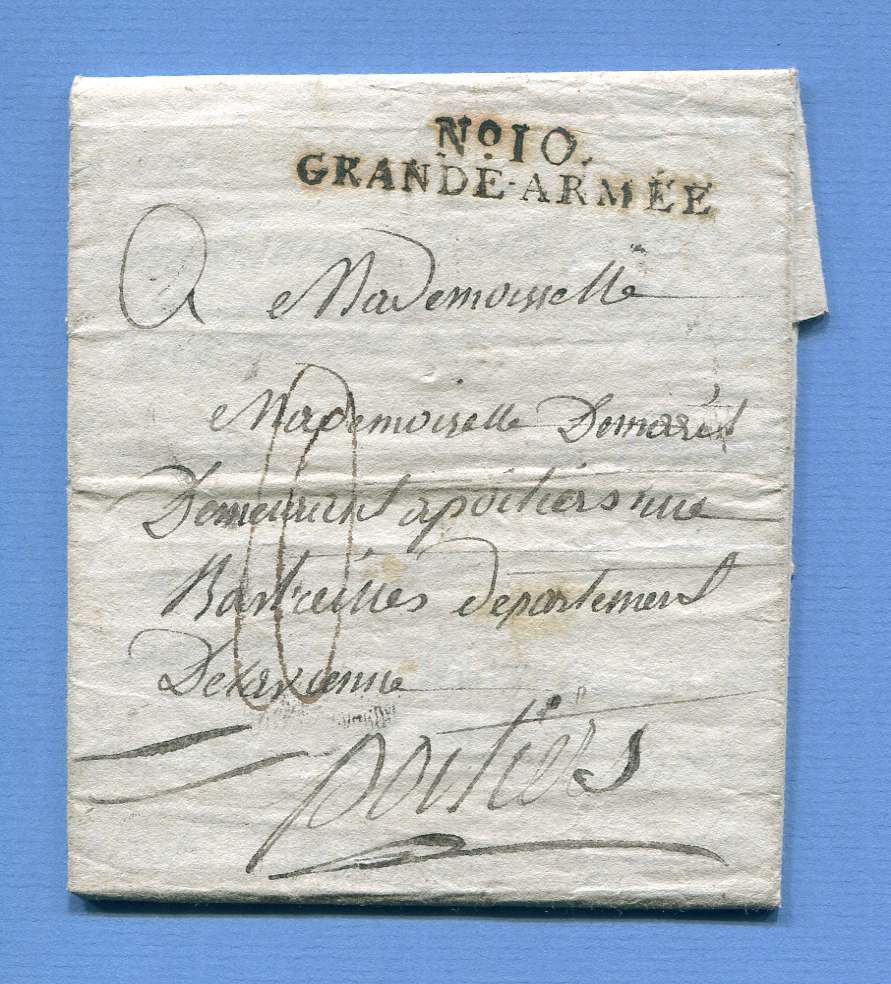 No. 10.
GRANDE-ARMÉE
A Mademoisselle
Mademoiselle Demarêt
Demeurant apoitiers rue
departement
Delavienne
poitiers